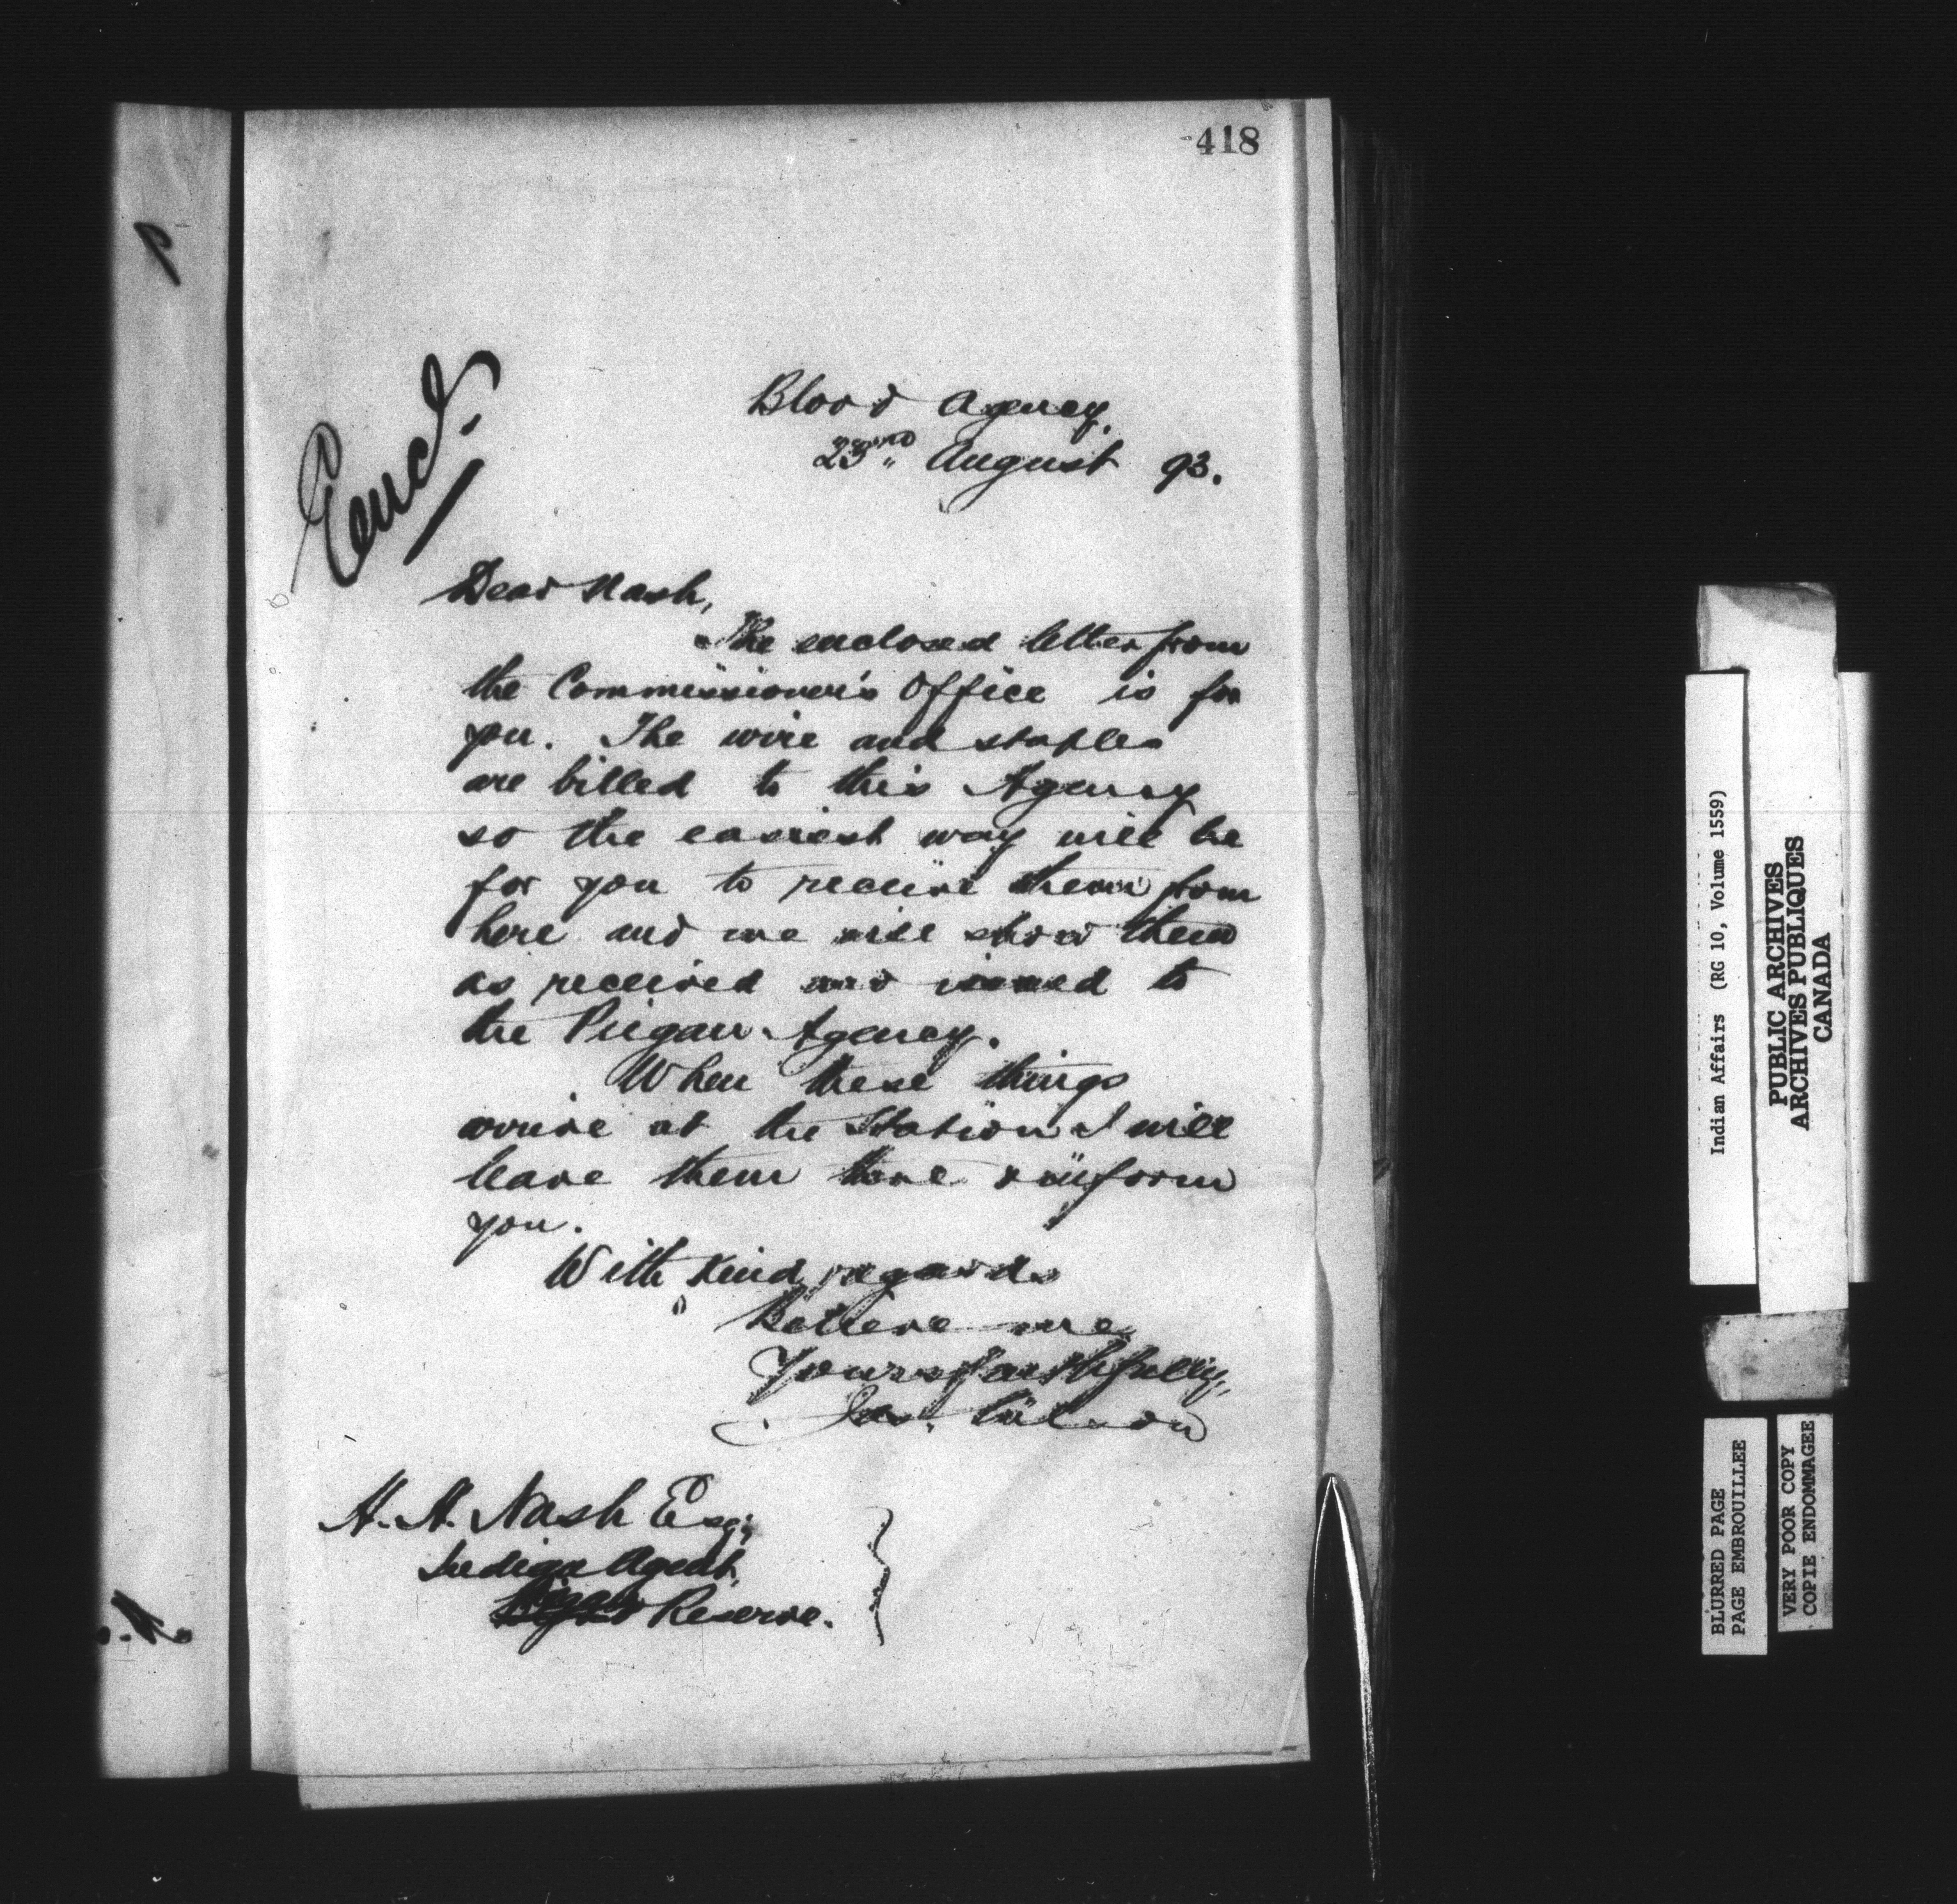 418
Encl.
Blood Agency,
23rd August 93.
Dear Nash,
The enclosed letter from
the Commissioner's Office is for
you. The wire and staples
are billed to this Agency
so the easiest way will be
for you to receive them from
here and we will show them
as received and issued to
the Piegan Agency.
When these things
arrive at the Station I will
leave them there & inform
you.
With kind regards
Believe me
Yours faithfully,
Jas. Wilson
H. H. Nash Esq.,
Indian Agent,
Reserve.
Indian Affairs (RG 10, Volume 1559)
PUBLIC ARCHIVES
ARCHIVES PUBLIQUES
CANADA
BLURRED PAGE
PAGE EMBROUILLEE
VERY POOR COPY
COPIE ENDOMMAGEE